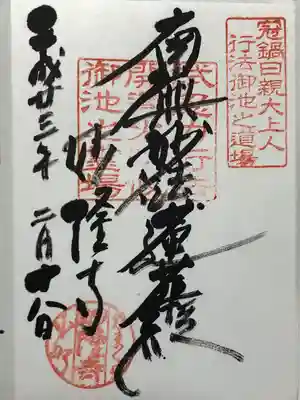 冠鍋日親大上人
行法御池之道場
南無妙法蓮華経
御池之霊場
妙隆寺
平成廿三年 二月十八日